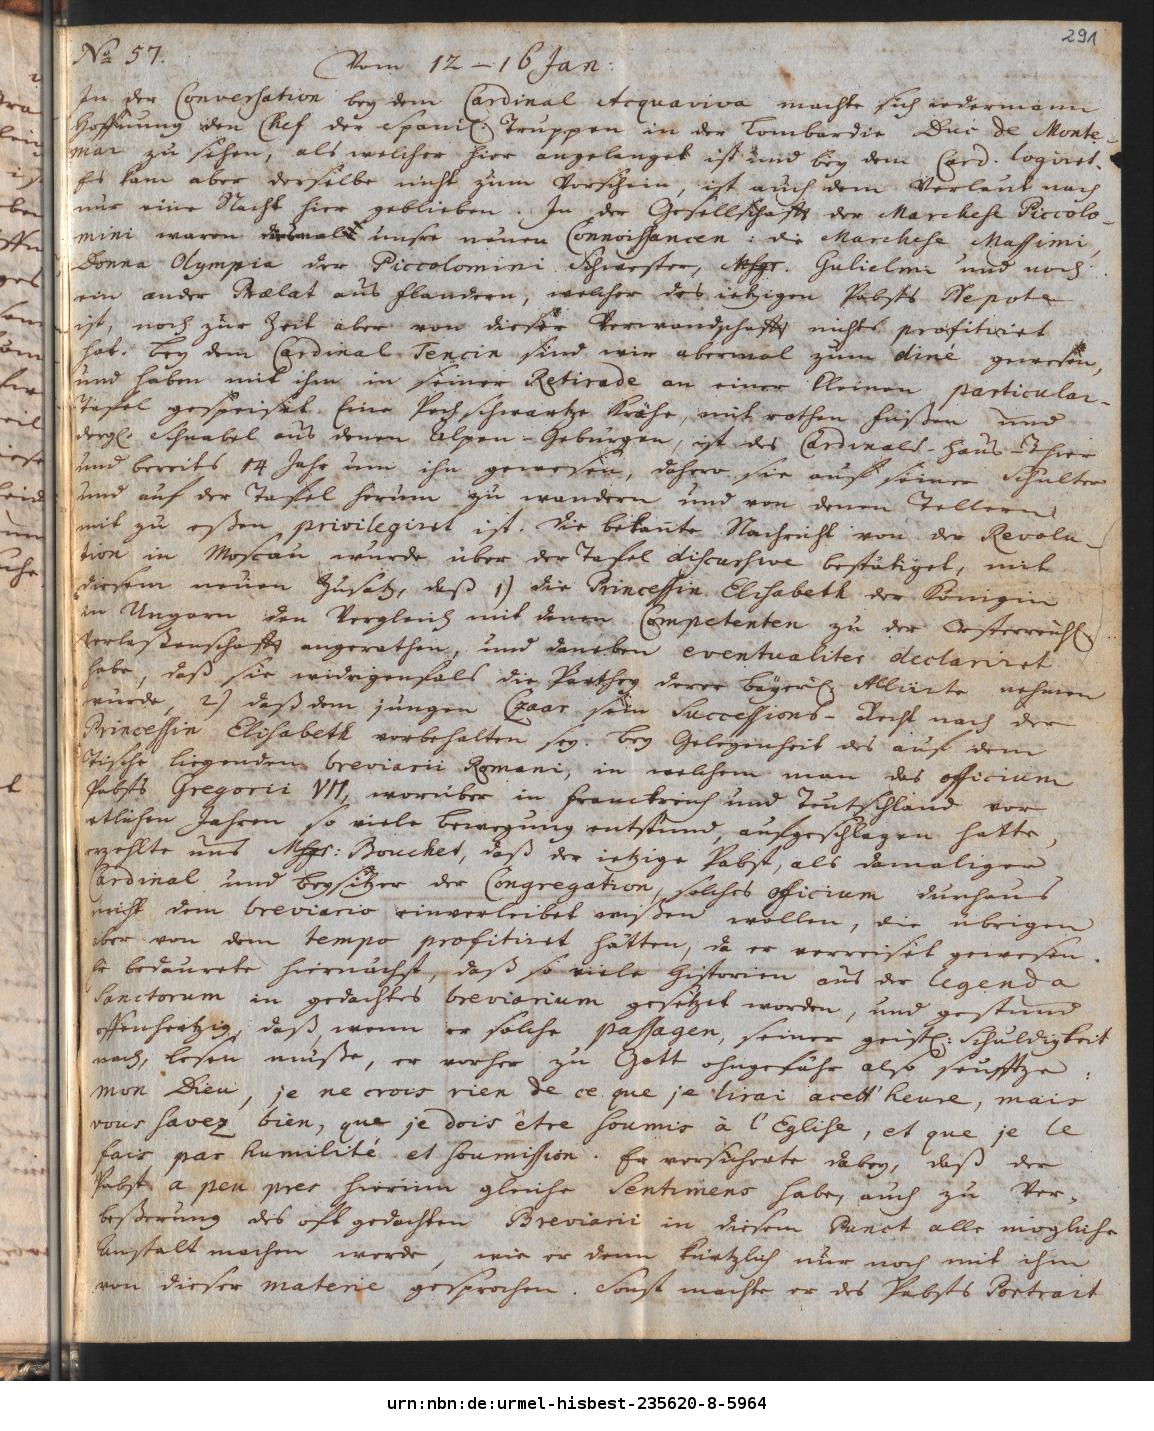 291
No 57. Vom 12 – 16 Jan:
In der Conversation bey dem Cardinal Acquaviva machte sich iedermann
Hoffnung den Chef der Spanis: Truppen in der Lombardie Duc de Monte-
mar zu sehen, als welcher hier angelanget ist und bey dem Card. logiret.
Es kam aber derselbe nicht zum Vorschein, ist auch dem Verlaut nach
nur eine Nacht hier geblieben. In der Gesellschafft der Marchese Piccolo-
mini waren unsre neuen Connoissancen: die Marchese Massimi,
Donna Olympia der Piccolomini Schwester, Msgr. Gulielmi und noch
ein ander Prælat aus Flandern, welcher des ietzigen Pabsts Nepote
ist, noch zur Zeit aber von dieser Verwandschafft nichts profitiret
hat. Bey dem Cardinal Tencin sind wir abermal zum diné gewesen,
und haben mit ihm in seiner Retirade an einer kleinen particular-
Tafel gespeiset. Eine Pechschwartze Krähe, mit rothen Füßen und
dergl. Schnabel aus denen Alpen-Gebürgen, ist des Cardinals Haus-Thier
und bereits 14 Jahr um ihn gewesen, dahero sie auf seiner Schulter
und auf der Tafel herum zu wandern und von denen Tellern
mit zu eßen privilegiret ist. Die bekante Nachricht von der Revolu-
tion in Moscau wurde über der Tafel discursive bestätiget, mit
diesem neuen Zusatz, daß 1) die Princessin Elisabeth der Königin
in Ungarn den Vergleich mit denen Competenten zu der Oesterreichs:
Verlaßenschafft angerathen, und daneben eventualiter declariret
habe, daß sie widrigenfals die Parthey derer Bayeris: Alliirte nehmen
würde, 2) daß dem jungen Czaar sein Successions-Recht nach der
Princessin Elisabeth vorbehalten sey. Bey Gelegenheit des auf dem
Tische liegenden breviarii Romani, in welchem man das officium
Pabsts Gregorii VII, worüber in Franckreich und Teutschland vor
etlichen Jahren so viele Bewegung entstund, aufgeschlagen hatte,
erzehlte uns Msgr: Bouchet, daß der ietzige Pabst, als damaliger
Cardinal und Beysitzer der Congregation, solches officium durchaus
nicht dem breviario einverleibet wißen wollen, die übrigen
aber von dem tempo profitiret hätten, da er verreiset gewesen.
Er bedaurete hiernächst, daß so viele Historien aus der legenda
Sanctorum in gedachtes breviarium gesetzet worden, und gestund
offenhertzig, daß, wenn er solche passagen, seiner geistl: Schuldigkeit
nach, lesen müße, er vorher zu Gott ohngefähr also seufftze:
mon Dieu, je ne crois rien de ce que je lirai acett' heure, mais
vous savez bien, que je dois être soumis à l'Eglise, et que je le
fais par humilité et soumission. Er versicherte dabey, daß der
Pabst a peu pres hierinn gleiche Sentimens habe, auch zu Ver-
beßerung des oft gedachten Breviarii in diesem Punct alle mögliche
Anstalt machen werde, wie er denn kürtzlich nur noch mit ihm
von dieser materie gesprochen. Sonst machte er des Pabsts Portrait
urn:nbn:de:urmel-hisbest-235620-8-5964